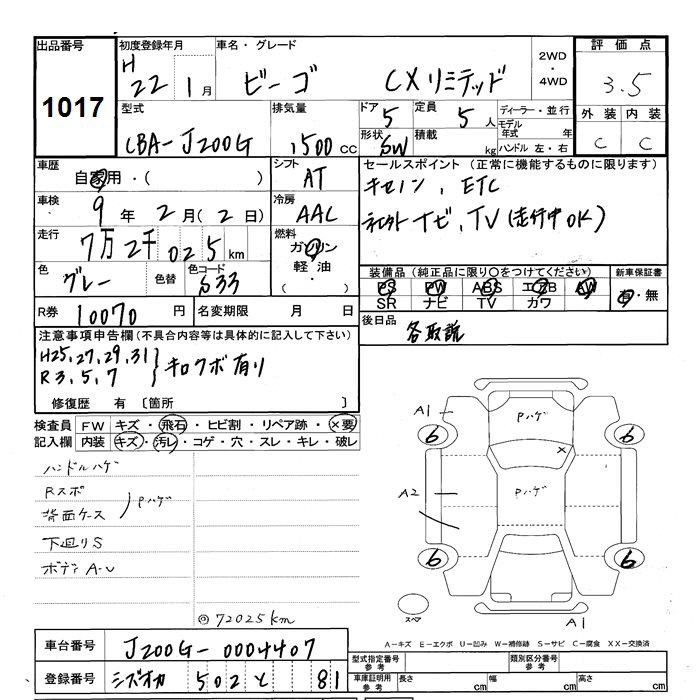 出品番号 初度登録年月 車名・グレード 2WD・4WD 評価点
1017 H22 1月 ビーゴ CXリミテッド 3.5
型式 排気量 ドア 定員 ディーラー・並行 外装 内装
CBA-J200G 1500cc 5 5人 モデル年式 年 C C
形状 SW 積載 kg ハンドル 左・右
車歴 シフト セールスポイント (正常に機能するものに限ります)
自家用・( ) AT キセノン、ETC
車検 9年2月(2日) 冷房 AAC ナビ、TV(走行中OK)
走行 7万2千025km 燃料 ガソリン・軽油・( )
色 グレー 色替 色コード S33
装備品 (純正品に限り○をつけてください) 新車保証書
PS PW ABS エアB AW 有・無
SR ナビ TV カワ
R券 10070円 名変期限 月 日
後日品 各取説
注意事項申告欄 (不具合内容等は具体的に記入して下さい)
H25,27,29,31
R3,5,7 キロクボ有り
修復歴 有 〔箇所 〕
検査員 FW キズ・飛石・ヒビ割・リペア跡・×要
記入欄 内装 キズ・汚レ・コゲ・穴・スレ・キレ・破レ
ハンドルハゲ
Rスポ
背面ケース Pハゲ
下廻りS
ボデーA-U
◎72025km
A1 Pハゲ
6 6
×
A2 Pハゲ
6 6
スペア A1
A-キズ E-エクボ U-凹み W-補修跡 S-サビ C-腐食 XX-交換済
車台番号 J200G-0004407
型式指定番号 参考 類別区分番号 参考
登録番号 シズオカ 502 と 81
車庫証明用 参考 長さ cm 幅 cm 高さ cm